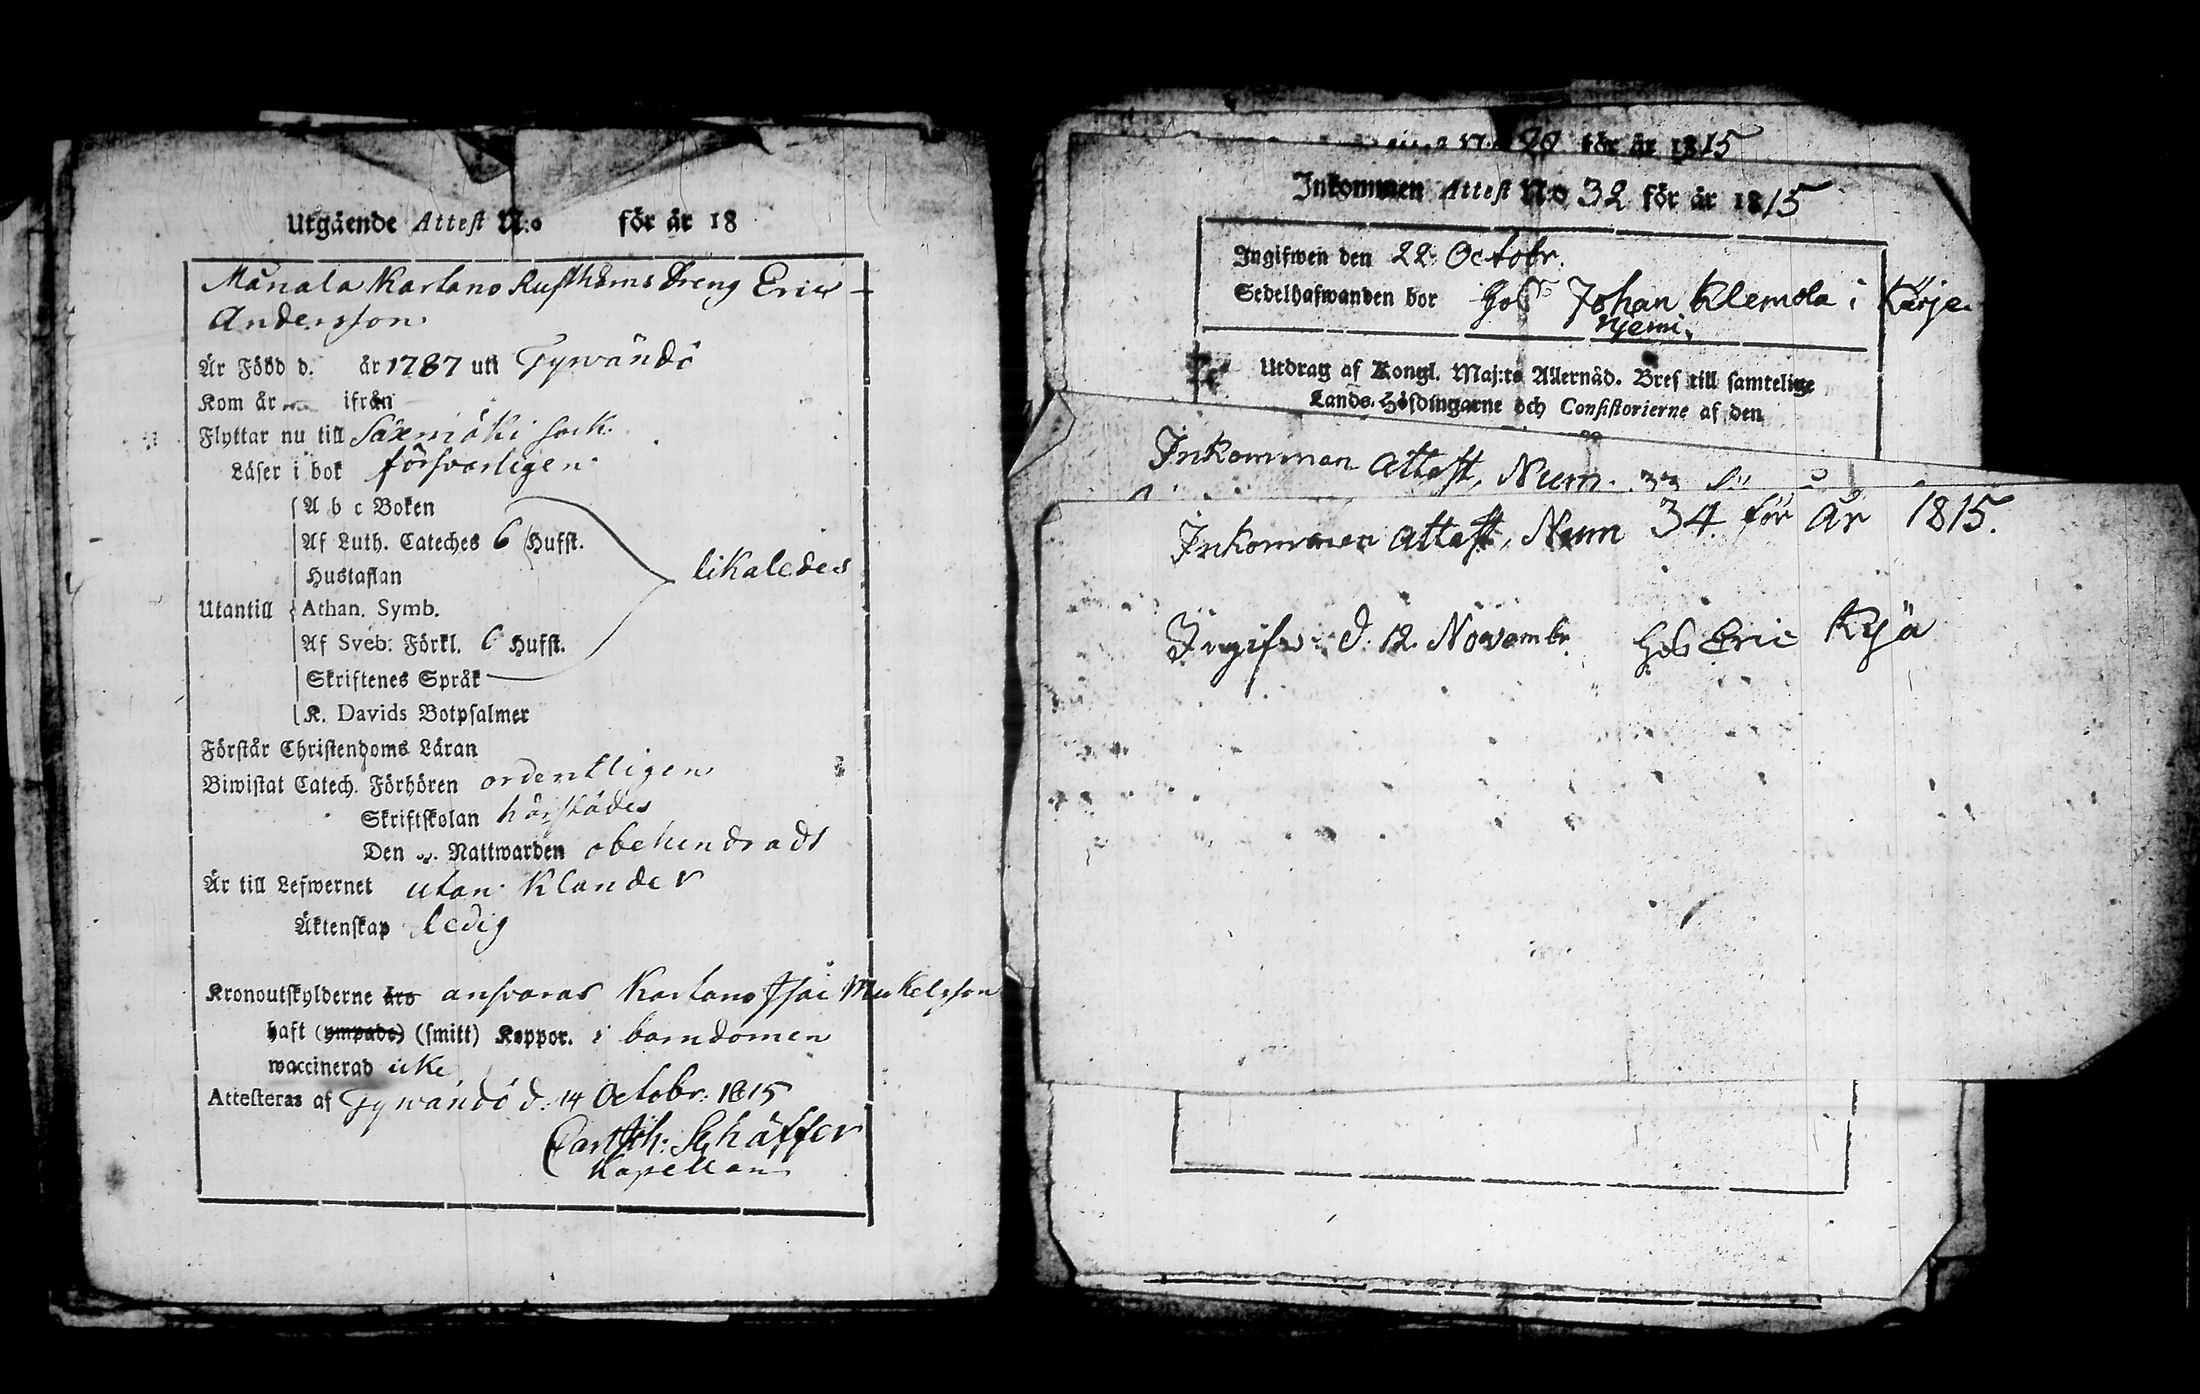 Utgående Attest N:o för år 18
Månala Kartano Rusthåms Dreng Eric
Andersson
Är Född d. år 1787 uti Tyrwändö
Kom år ifrån
Flyttar nu till Säxmäki sock.
Läser i bok försvarligen
A b c Boken
Af Luth. Cateches 6 Hufst.
Hustaflan
likaledes
Utantill Athan. Symb.
Af Sveb. Förkl. 6 Hufst.
Skriftenes Språk
K. Davids Botpsalmer
Förstår Christendoms Läran
Biwistat Catech. Förhören ordentligen
Skriftskolan härstädes
Den Nattwarden obehindradt
Är till Lefwernet utan klander
Äktenskap ledig
Kronoutskylderne äro ansvaras Kartano Isac Mickelsson
haft (ympade) (smitt) Koppor. i barndomen
waccinerad icke
Attesteras af Tyrwändö d. 14 Octobr: 1815
Carl Joh: Schäffer
Kapellan
för år 1815
Inkommen Attest N:o 32 för år 1815
Ingifwen den 22 Octobr.
Sedelhafwanden bor hos Johan Klemola i Kärje
njemi.
Utdrag af Kongl. Maj:ts Allernåd. Bref till samtelige
Lands-Höfdingarne och Consistorierne af den
Inkommen attest, Num. 33
Inkommen attest, Num 34 för år 1815.
Ingifv: d. 12 Novembr. hos Eric Kyä